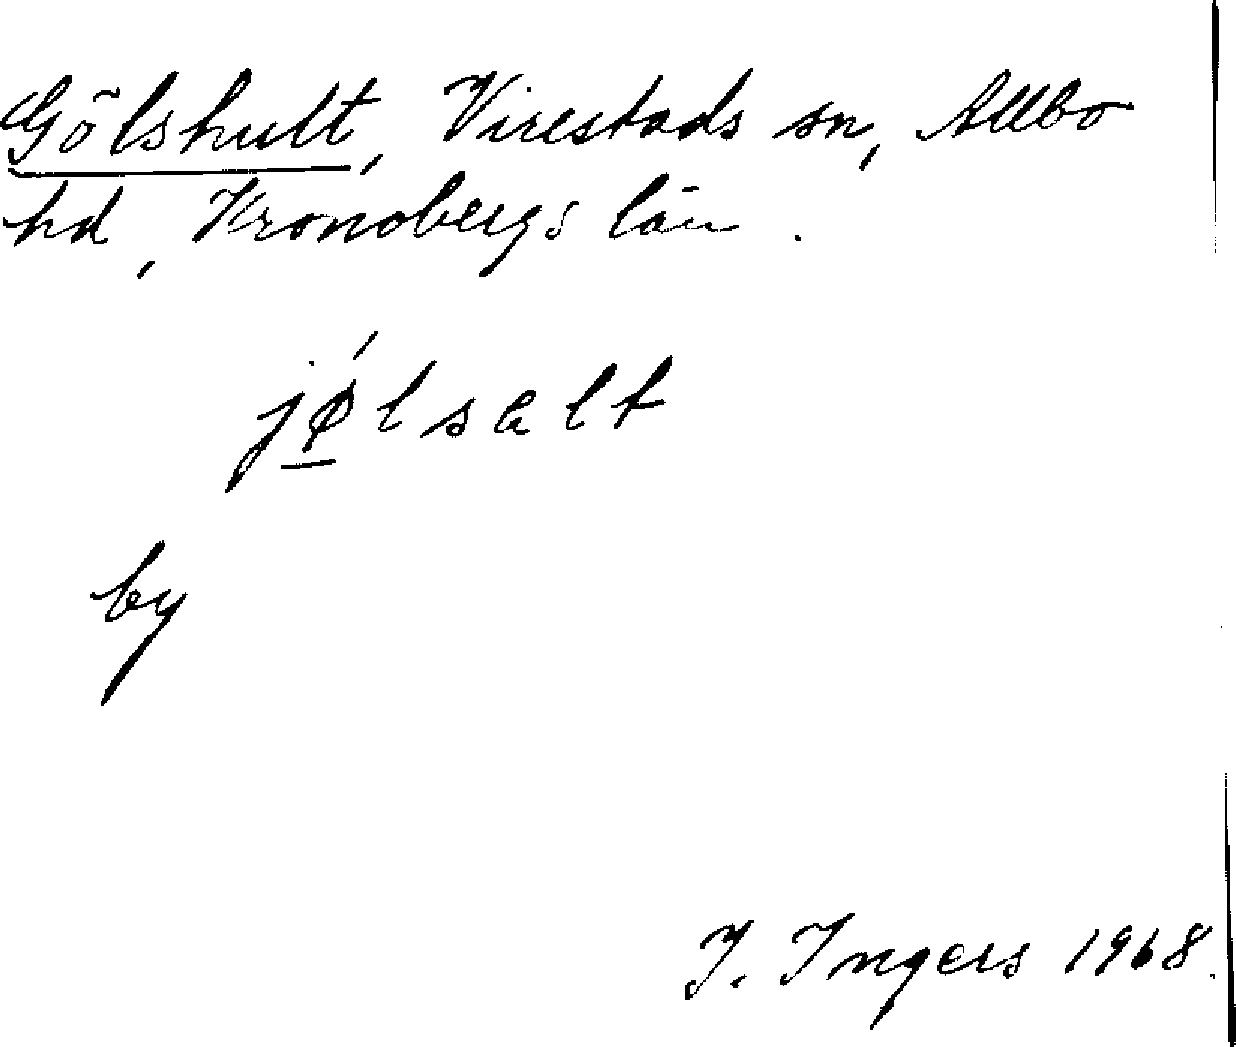 Gölshult, Virestads sn, Allbo
hd, Kronobergs län.
jǿlsalt
by
I. Ingers 1968.